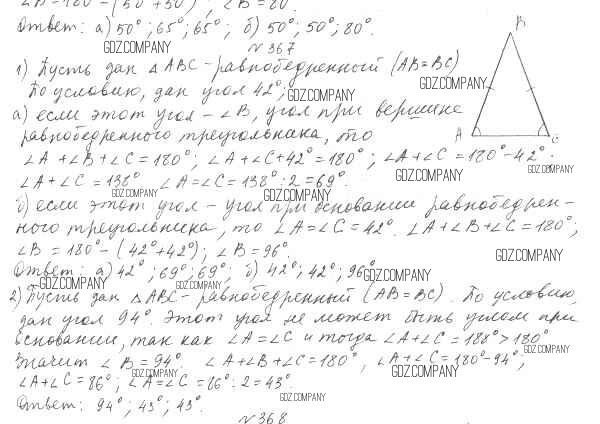 ∠B=180°-(50°+50°); ∠B=80°.
Ответ: а) 50°; 65°; 65°; б) 50°; 50°; 80°.
GDZ.COMPANY
№ 367
1) Пусть дан △ABC - равнобедренный (AB=BC)
GDZ.COMPANY
По условию, дан угол 42°;
GDZ.COMPANY
а) если этот угол - ∠B, угол при вершине
равнобедренного треугольника, то
∠A+∠B+∠C=180°; ∠A+∠C+42°=180°; ∠A+∠C=180°-42°.
GDZ.COMPANY
GDZ.COMPANY
∠A+∠C=138° ∠A=∠C=138°:2=69°.
GDZ.COMPANY
GDZ.COMPANY
б) если этот угол - угол при основании равнобедрен-
ного треугольника, то ∠A=∠C=42°. ∠A+∠B+∠C=180°;
∠B=180°-(42°+42°); ∠B=96°.
GDZ.COMPANY
Ответ: а) 42°; 69°; 69°; б) 42°; 42°; 96°
GDZ.COMPANY
GDZ.COMPANY
GDZ.COMPANY
2) Пусть дан △ABC - равнобедренный (AB=BC). По условию,
дан угол 94°. Этот угол не может быть углом при
основании, так как ∠A=∠C и тогда ∠A+∠C=188°>180°
GDZ.COMPANY
Значит ∠B=94°. ∠A+∠B+∠C=180°, ∠A+∠C=180°-94°;
GDZ.COMPANY
GDZ.COMPANY
∠A+∠C=86°; ∠A=∠C=86°:2=43°.
Ответ: 94°; 43°; 43°.
GDZ.COMPANY
№ 368
B
A
C